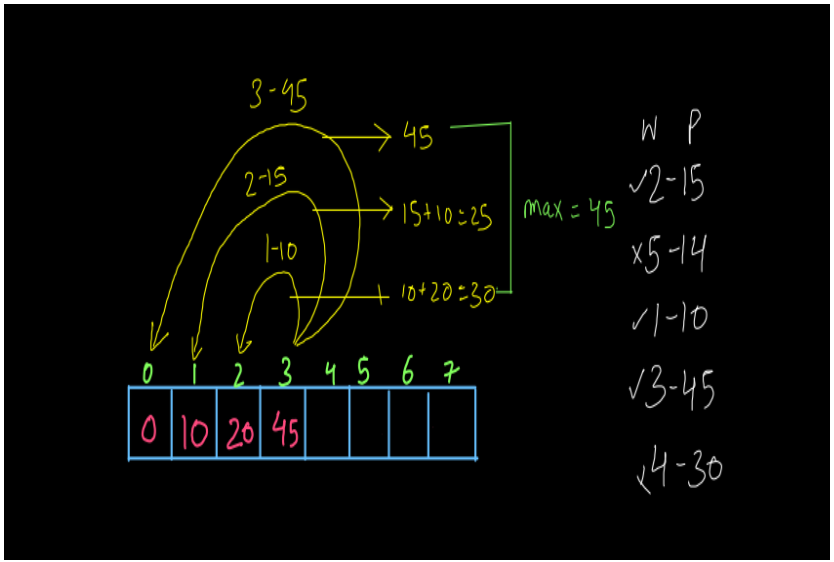 3-45
45
2-15
15+10=25
max = 45
1-10
10+20=30
0 1 2 3 4 5 6 7
0 10 20 45
W P
✓2-15
x5-14
✓1-10
✓3-45
x4-30